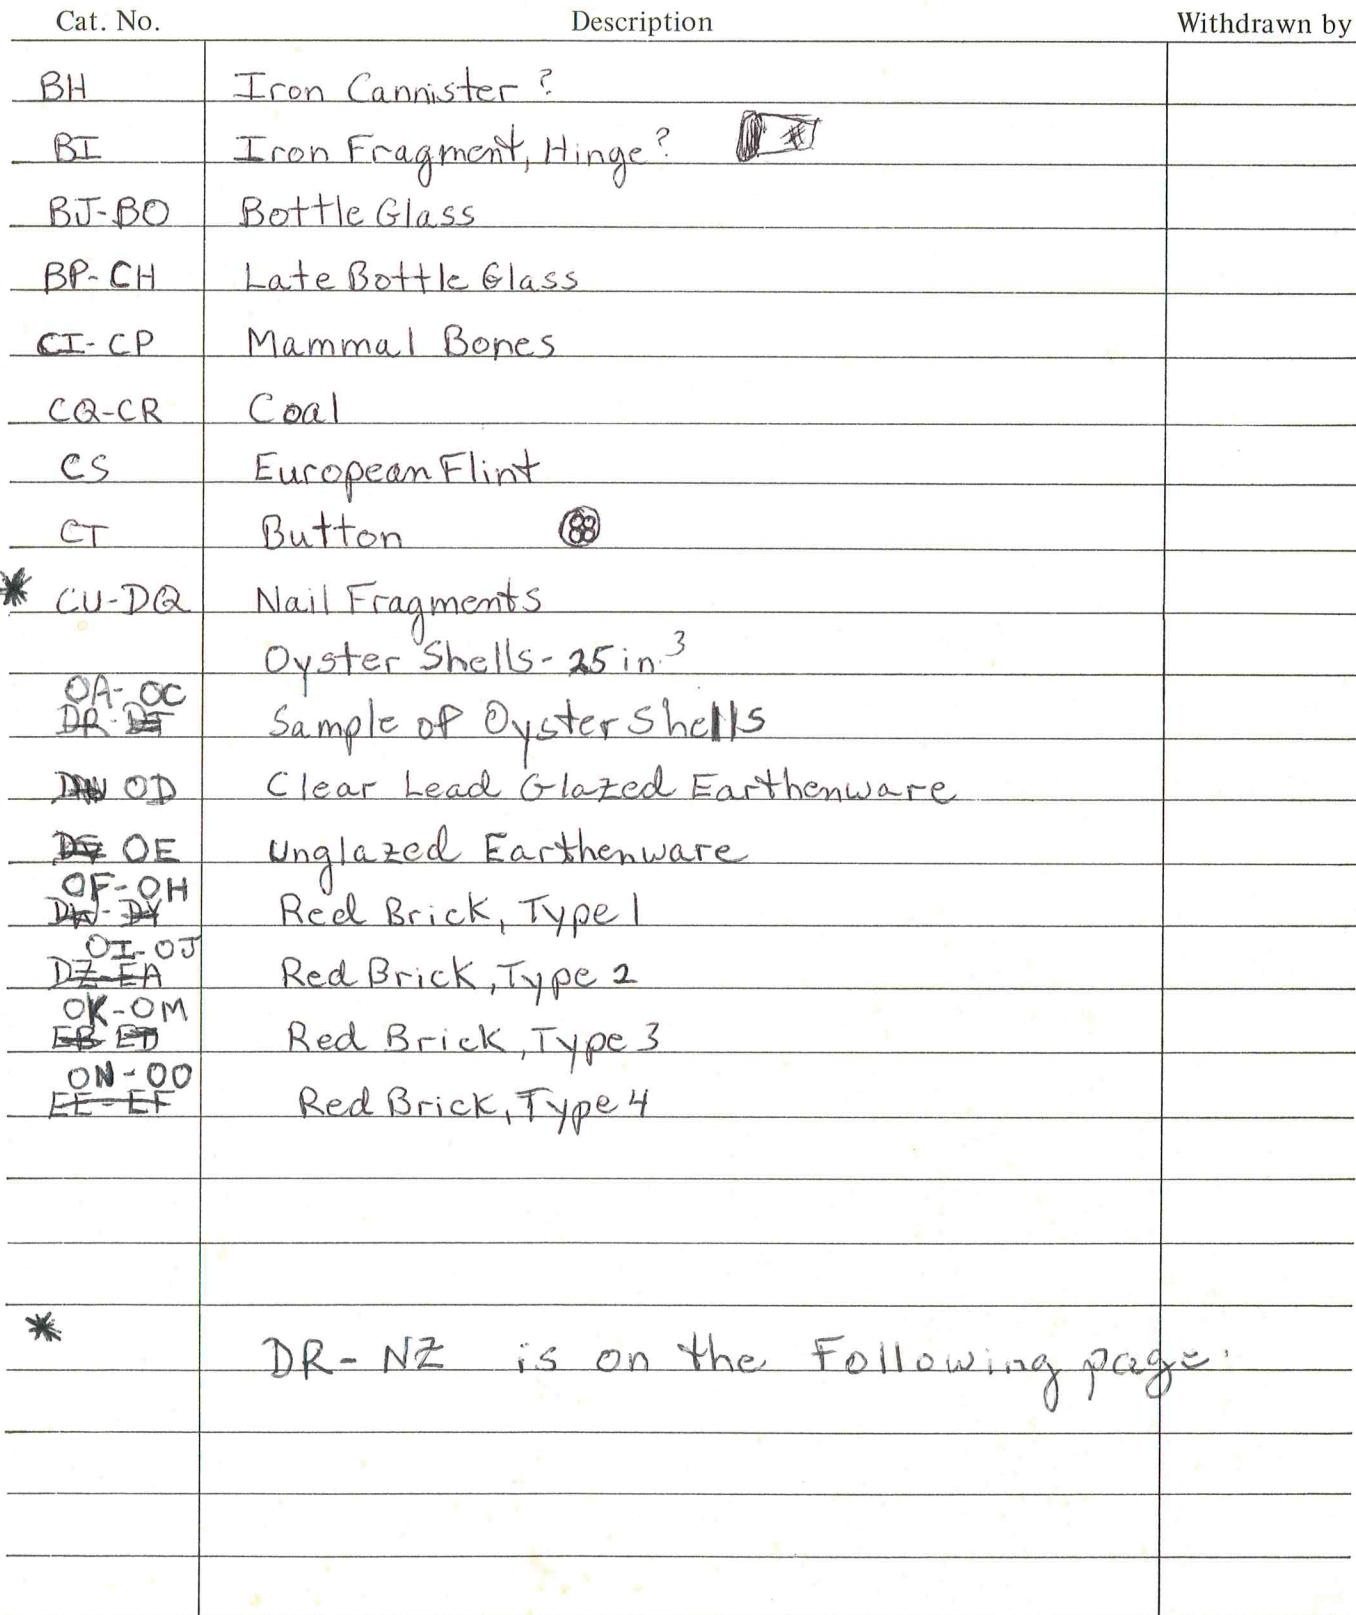 Cat. No. Description Withdrawn by
BH Iron Cannister ?
BI Iron Fragment, Hinge?
BJ-BO Bottle Glass
BP-CH Late Bottle Glass
CI-CP Mammal Bones
CQ-CR Coal
CS European Flint
CT Button
* CU-DQ Nail Fragments
Oyster Shells - 25 in.³
OA-OC
DR-DT Sample of Oyster Shells
OD Clear Lead Glazed Earthenware
OE Unglazed Earthenware
OF-OH
DW-DY Red Brick, Type 1
OI-OJ
DZ-EA Red Brick, Type 2
OK-OM
EB-ED Red Brick, Type 3
ON-OO
EE-EF Red Brick, Type 4
*
DR-NZ is on the Following page.